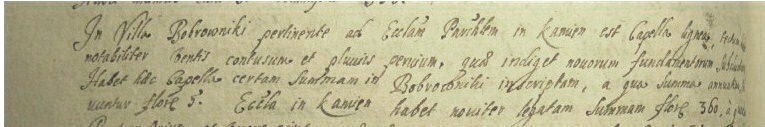 In Villa Bobrowniki pertinente ad Eccłam Parchlem in Kamien est Capella lignea, tectum
notabiliter ventis contusum et pluviis pervium, quæ indiget novorum fundamentorum
Habet hæc Capella certam summam in Bobrowniki inscriptam, a qua summa annuatim
untur flore 5. Eccla in Kamien habet noviter legatam summam flore 360, a qua